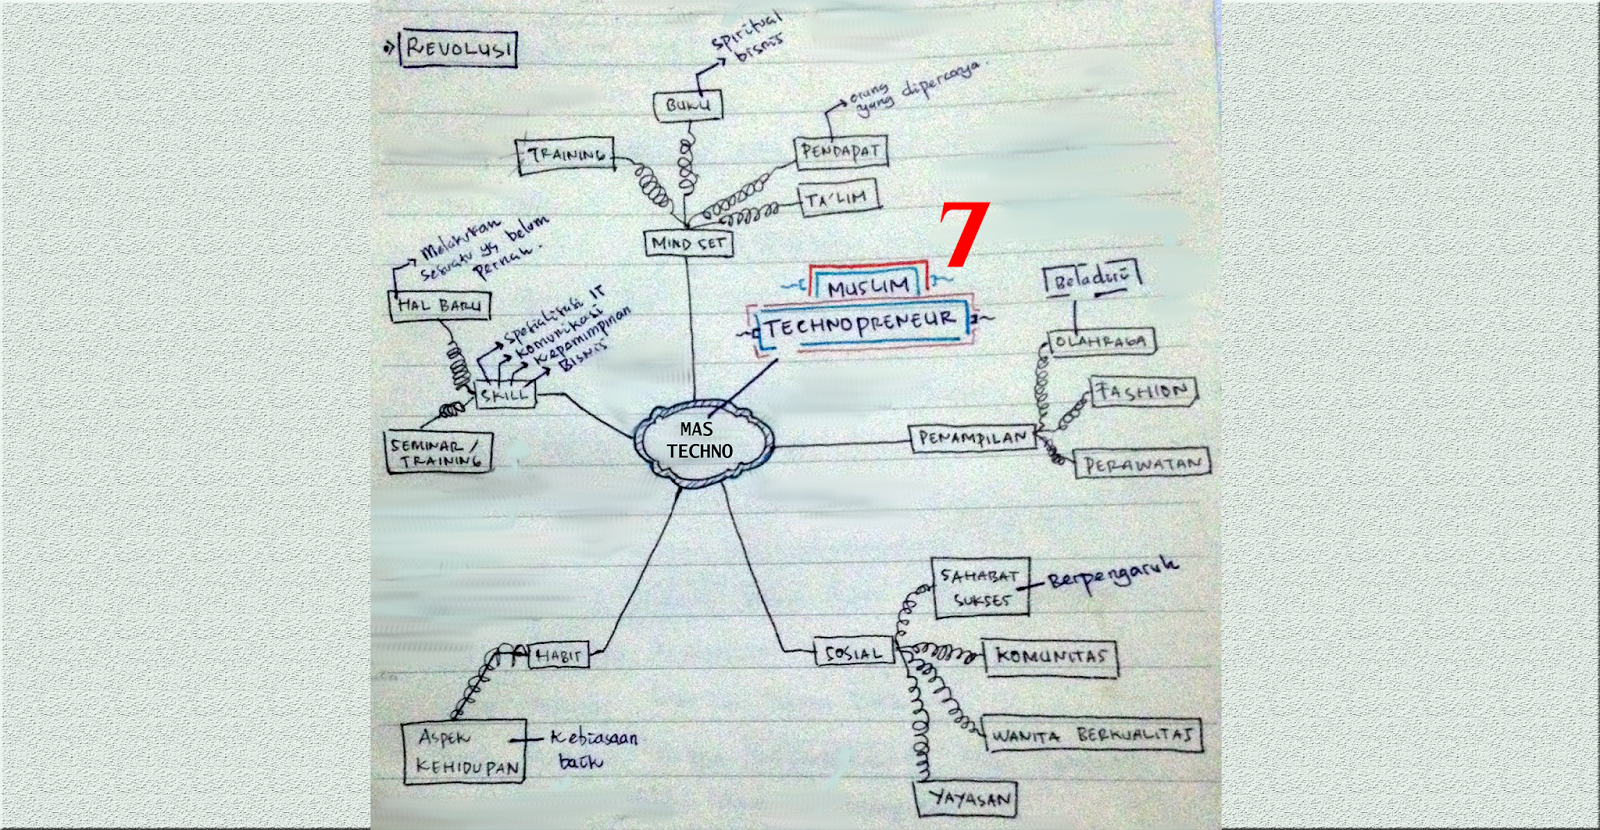 REVOLUSI
spiritual
bisnis
BUKU
orang
yang dipercaya.
TRAINING
PENDAPAT
TA'LIM
MIND SET
7
Melakukan
sesuatu yg belum
pernah.
HAL BARU
Spesialisasi IT
Komunikasi
Kepemimpinan
Bisnis
SKILL
SEMINAR /
TRAINING
MUSLIM
TECHNOPRENEUR
Beladiri
OLAHRAGA
FASHION
PENAMPILAN
PERAWATAN
MAS
TECHNO
SAHABAT
SUKSES
Berpengaruh
HABIT
SOSIAL
KOMUNITAS
WANITA BERKUALITAS
YAYASAN
ASPEK
KEHIDUPAN
Kebiasaan
baik